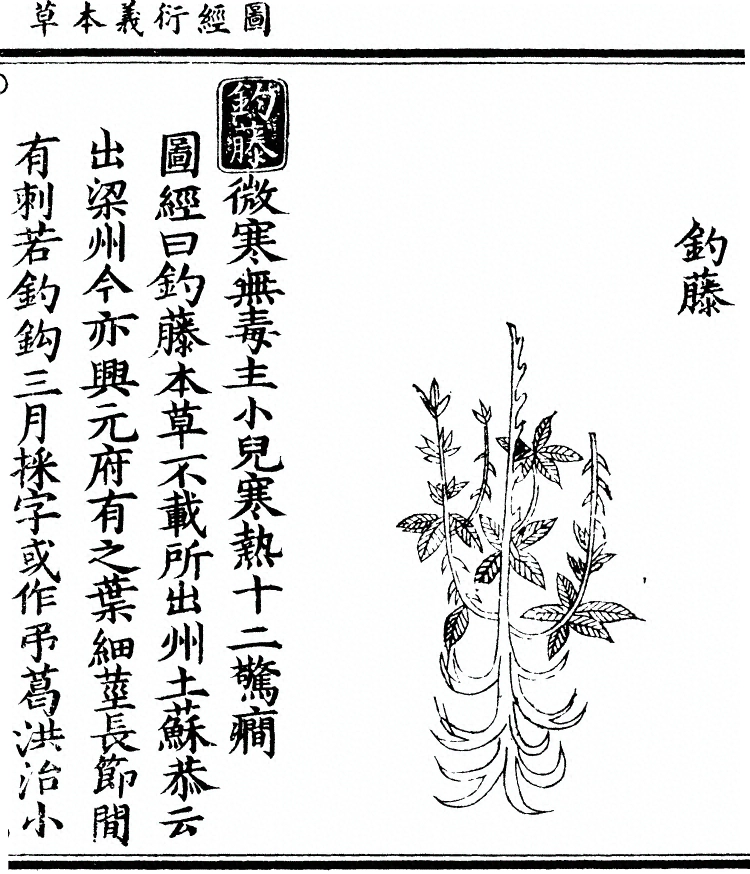 圖經衍義本草
釣藤
釣藤微寒無毒主小兒寒熱十二驚癎
圖經曰釣藤本草不載所出州土蘇恭云
出梁州今亦興元府有之葉細莖長節間
有刺若釣鈎三月採字或作弔葛洪治小